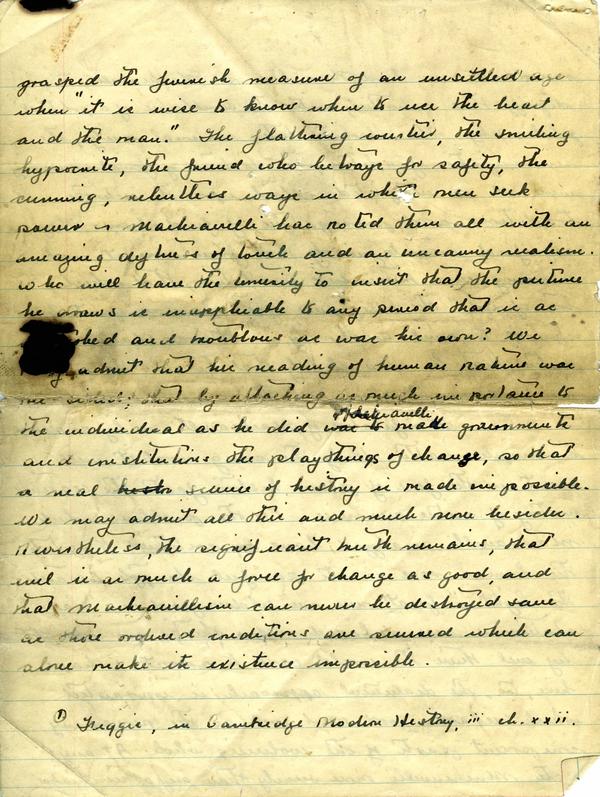 grasped the feverish measure of an unsettled age
when "it is wise to know when to use the beast
and the man." The flattering courtier, the smiling
hypocrite, the friend who betrays for safety, the
cunning, relentless ways in which men seek
power – Machiavelli has noted them all with an
amazing deftness of touch and an uncanny realism.
Who will have the temerity to insist that the picture
he draws is inapplicable to any period that is as
and troublous as was his own? We
admit that his reading of human nature was
that by attaching as much importance to
the individual as he did Machiavelli made governments
and constitutions the playthings of change, so that
a real science of history is made impossible.
We may admit all this and much more besides.
Nevertheless, the significant truth remains, that
evil is as much a force for change as good, and
that Machiavellism can never be destroyed save
as those ordered conditions are secured which can
alone make its existence impossible.
① Figgis, in Cambridge Modern History, iii ch. xxii.